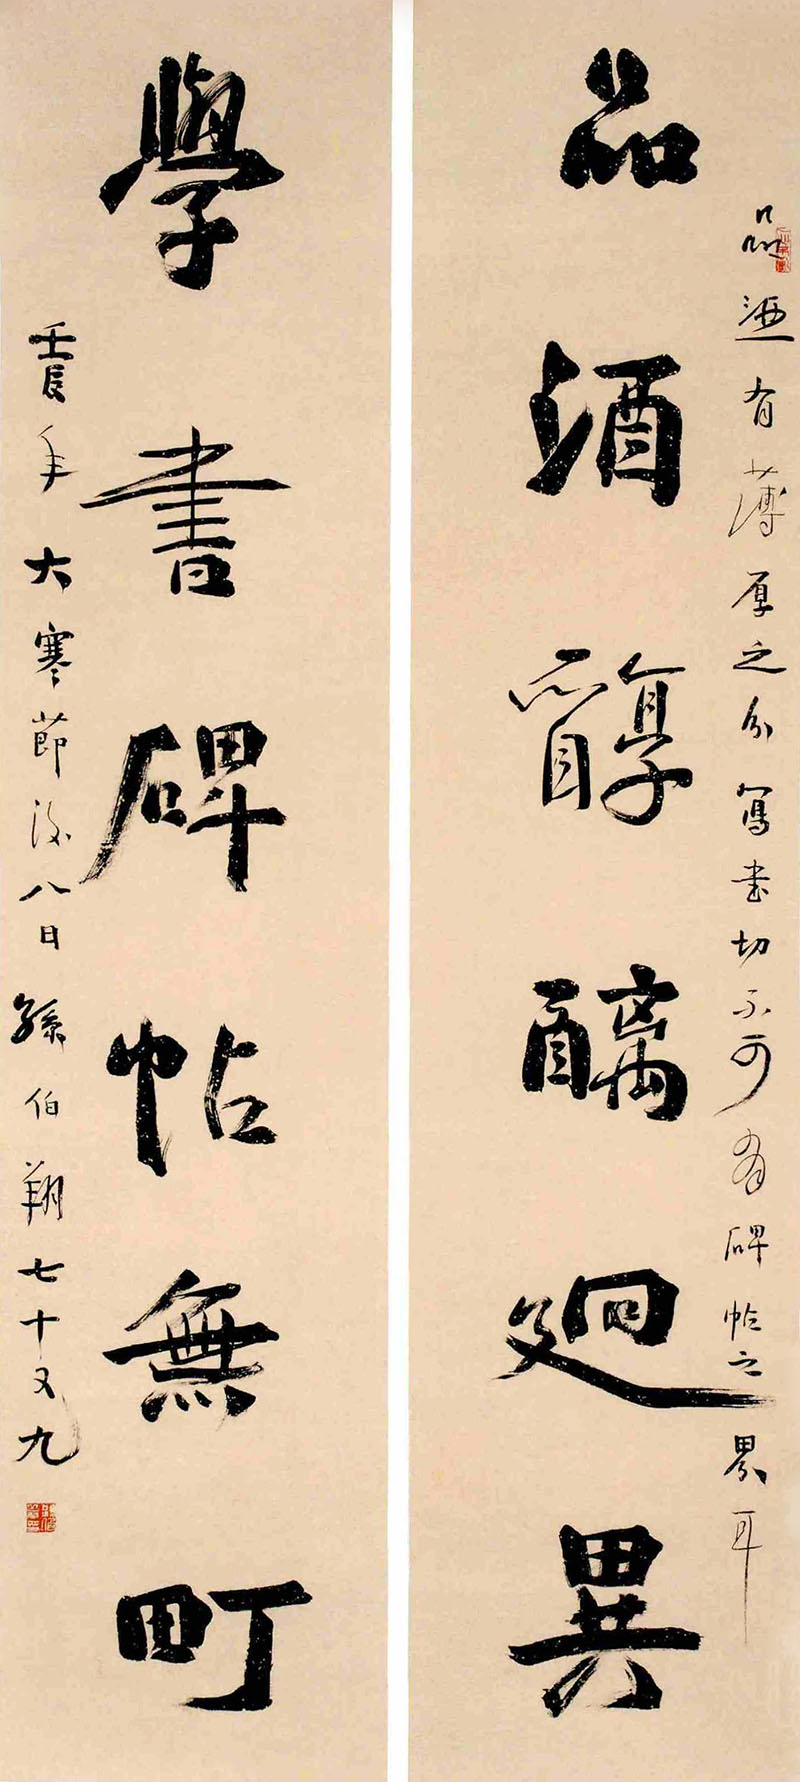 品酒有薄厚之分寫書切不可有碑帖之界耳
品酒醇醨迥異
學書碑帖無町
壬辰年大寒節後八日孫伯翔七十又九